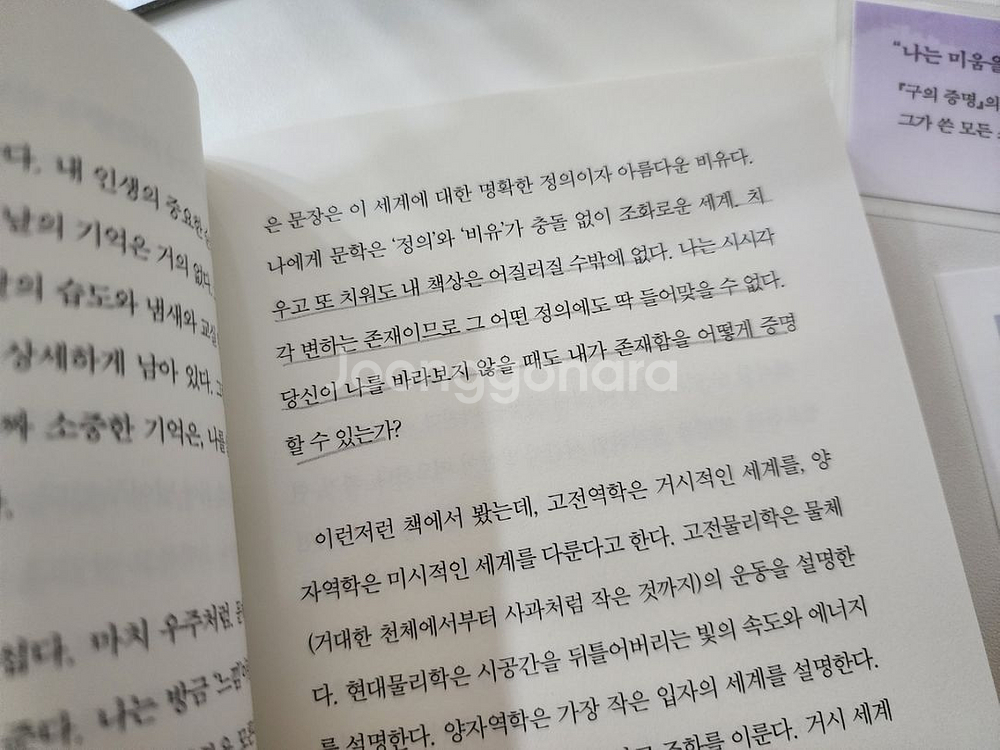 다. 내 인생의 중요한
날의 기억은 거의 없다.
의 습도와 냄새와 교실
상세하게 남아 있다.
소중한 기억은, 나를
마치 우주처럼,
나는 방금
은 문장은 이 세계에 대한 명확한 정의이자 아름다운 비유다.
나에게 문학은 ‘정의’와 ‘비유’가 충돌 없이 조화로운 세계. 치
우고 또 치워도 내 책상은 어질러질 수밖에 없다. 나는 시시각
각 변하는 존재이므로 그 어떤 정의에도 딱 들어맞을 수 없다.
당신이 나를 바라보지 않을 때도 내가 존재함을 어떻게 증명
할 수 있는가?
이런저런 책에서 봤는데, 고전역학은 거시적인 세계를, 양
자역학은 미시적인 세계를 다룬다고 한다. 고전물리학은 물체
(거대한 천체에서부터 사과처럼 작은 것까지)의 운동을 설명한
다. 현대물리학은 시공간을 뒤틀어버리는 빛의 속도와 에너지
를 설명한다. 양자역학은 가장 작은 입자의 세계를 설명한다.
조화를 이룬다. 거시 세계
“나는 미움을
『구의 증명』의
그가 쓴 모든
Joonggonara